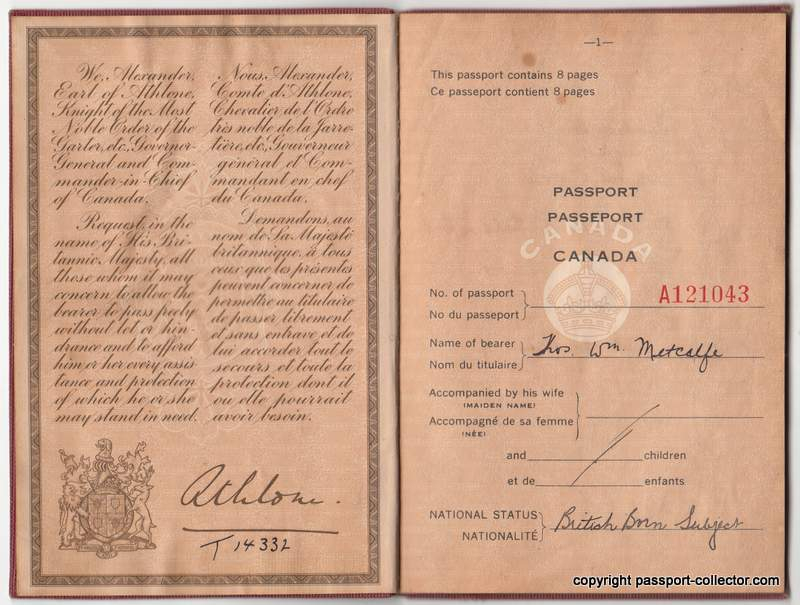 We, Alexander,
Earl of Athlone,
Knight of the Most
Noble Order of the
Garter, etc., Governor-
General and Com-
mander-in-Chief
of Canada.
Request, in the
name of His Bri-
tannic Majesty, all
those whom it may
concern to allow the
bearer to pass freely
without let or hin-
drance and to afford
him or her every assis
tance and protection
of which he or she
may stand in need.
Nous, Alexander,
Comte d'Athlone,
Chevalier de l'Ordre
très noble de la Jarre-
tière, etc., Gouverneur
général et Com-
mandant en chef
du Canada.
Demandons, au
nom de Sa Majesté
britannique, à tous
ceux que les présentes
peuvent concerner de
permettre au titulaire
de passer librement
et sans entrave et de
lui accorder tout le
secours et toute la
protection dont il
ou elle pourrait
avoir besoin.
Athlone.
T 14332
—1—
This passport contains 8 pages
Ce passeport contient 8 pages
PASSPORT
PASSEPORT
CANADA
CANADA
No. of passport
A121043
No du passeport
Name of bearer
Thos. Wm. Metcalfe
Nom du titulaire
Accompanied by his wife
(MAIDEN NAME)
Accompagné de sa femme
(NÉE)
and children
et de enfants
NATIONAL STATUS
British Born Subject
NATIONALITÉ
copyright passport-collector.com